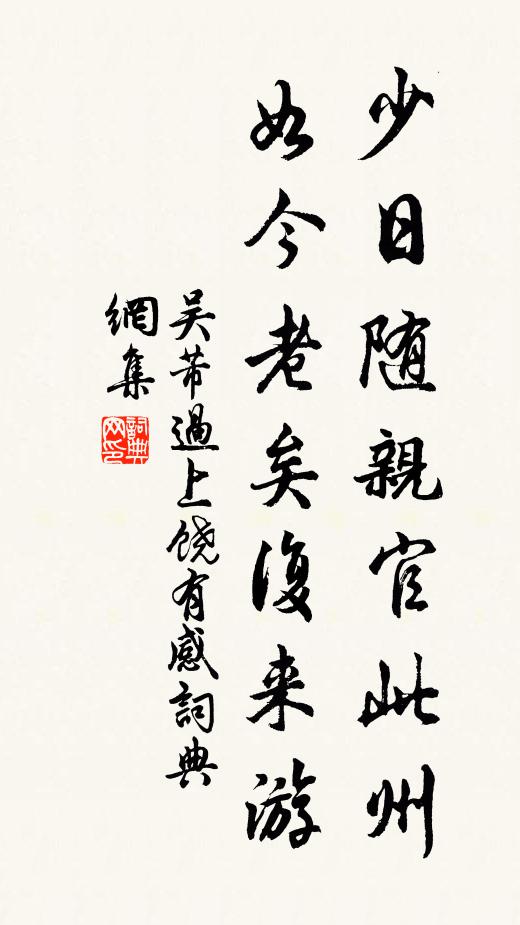 少日随親官此州
如今老矣復来游
吴芾過上饶有感詞典
網集
詞典網印